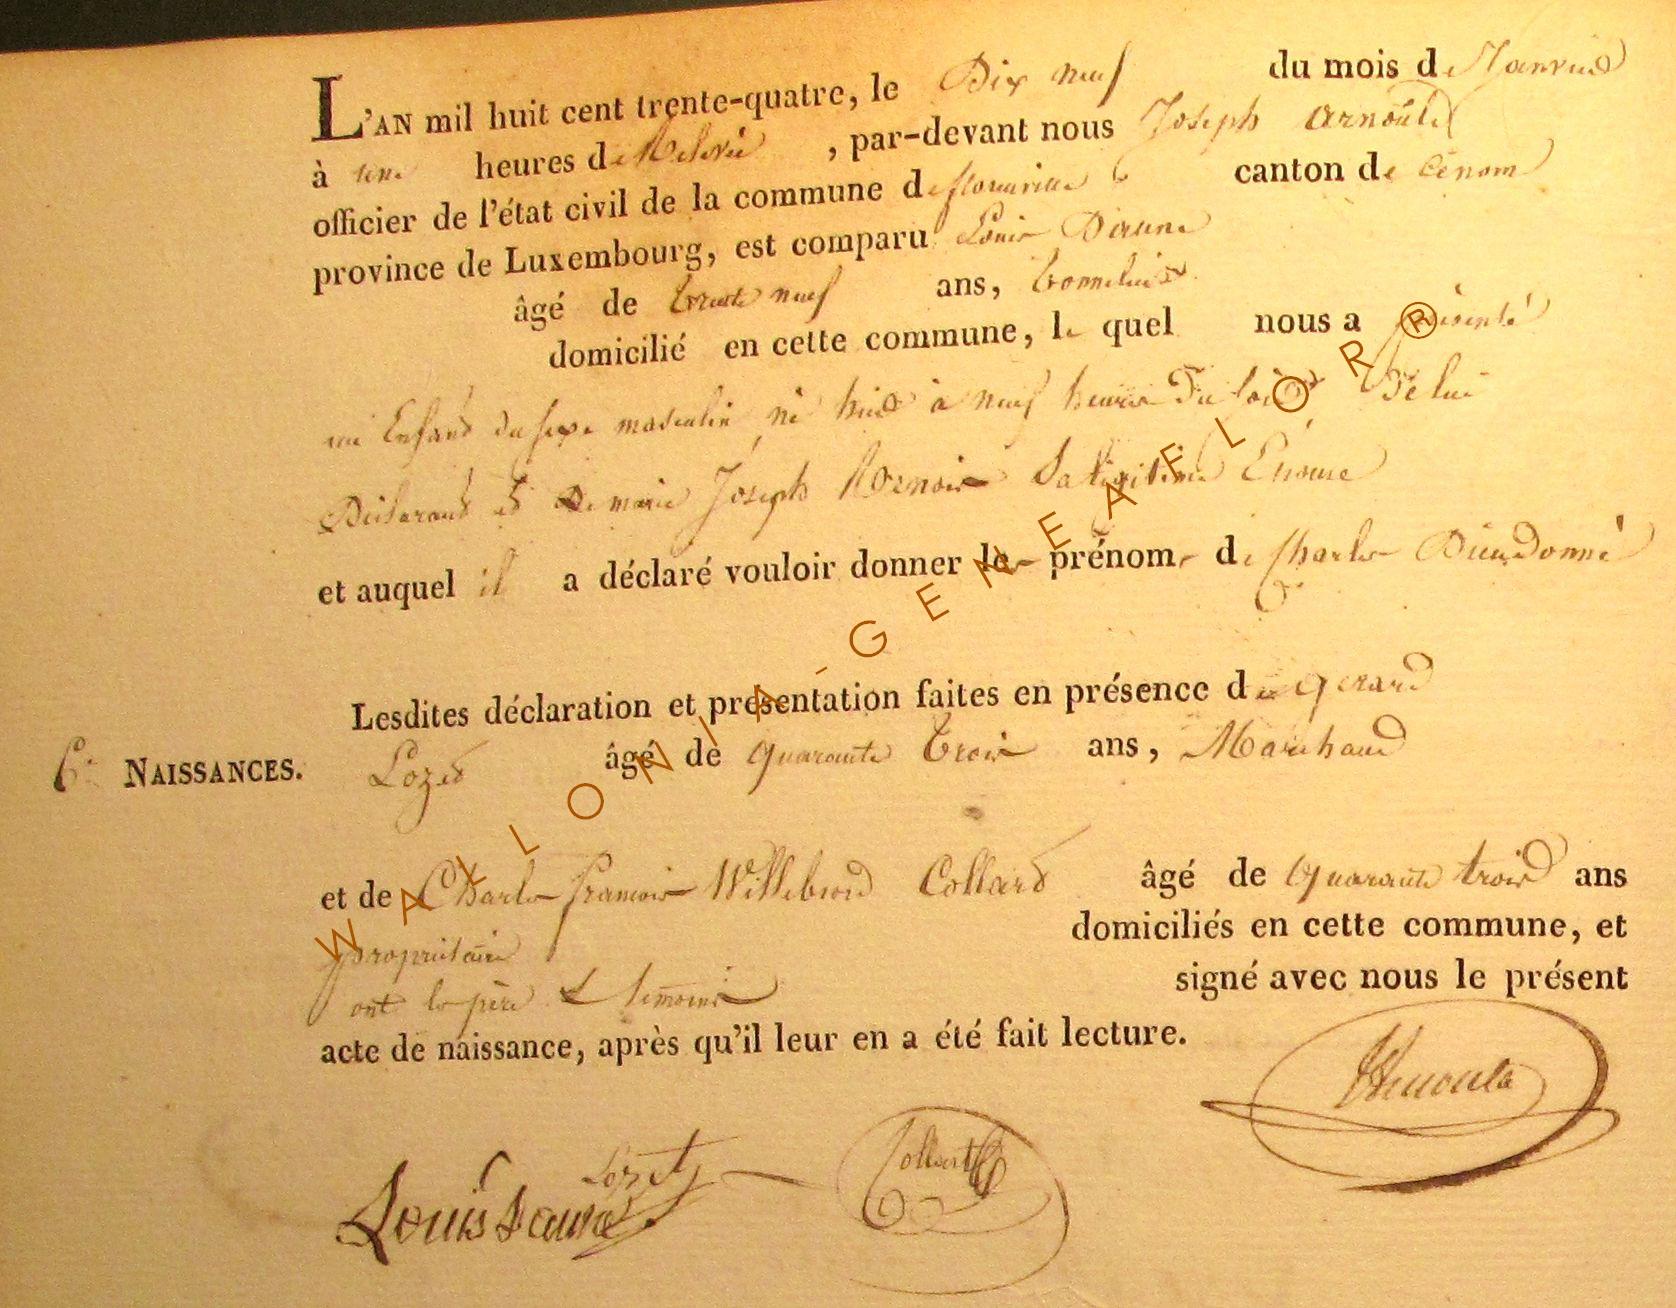 L'AN mil huit cent trente-quatre, le Dix neuf du mois de Janvier
à une heures de Relevée, par-devant nous Joseph Arnould
officier de l'état civil de la commune de florenville canton de
province de Luxembourg, est comparu Louis Daune
âgé de trente neuf ans, tonnelier
domicilié en cette commune, le quel nous a présenté
un Enfant du sexe masculin né hier à neuf heures Du soir De lui
Déclarant et De marie Joseph Sa légitime Épouse
et auquel il a déclaré vouloir donner les prénoms de Charles Dieudonné
Lesdites déclaration et presentation faites en présence de gerard
6e NAISSANCES. Lozet âgé de quarante trois ans, Marchand
et de Charles francois Willebrord Collard âgé de quarante trois ans
propriétaire domiciliés en cette commune, et
ont le père & témoins signé avec nous le présent
acte de naissance, après qu'il leur en a été fait lecture.
Arnould
Lozet Collard
Louis Daune
WALLONIA-GENEAFLOR®